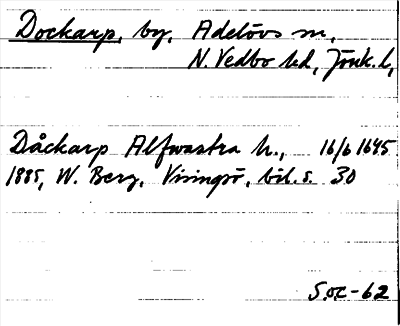 Dockarp, by, Adelövs sn,
N. Vedbo hd, Jönk. l,
Dåckarp Alfwastra h., 16/6 1645
1885, W. Berg, Visingsö, bil. s. 30
S.oc-62